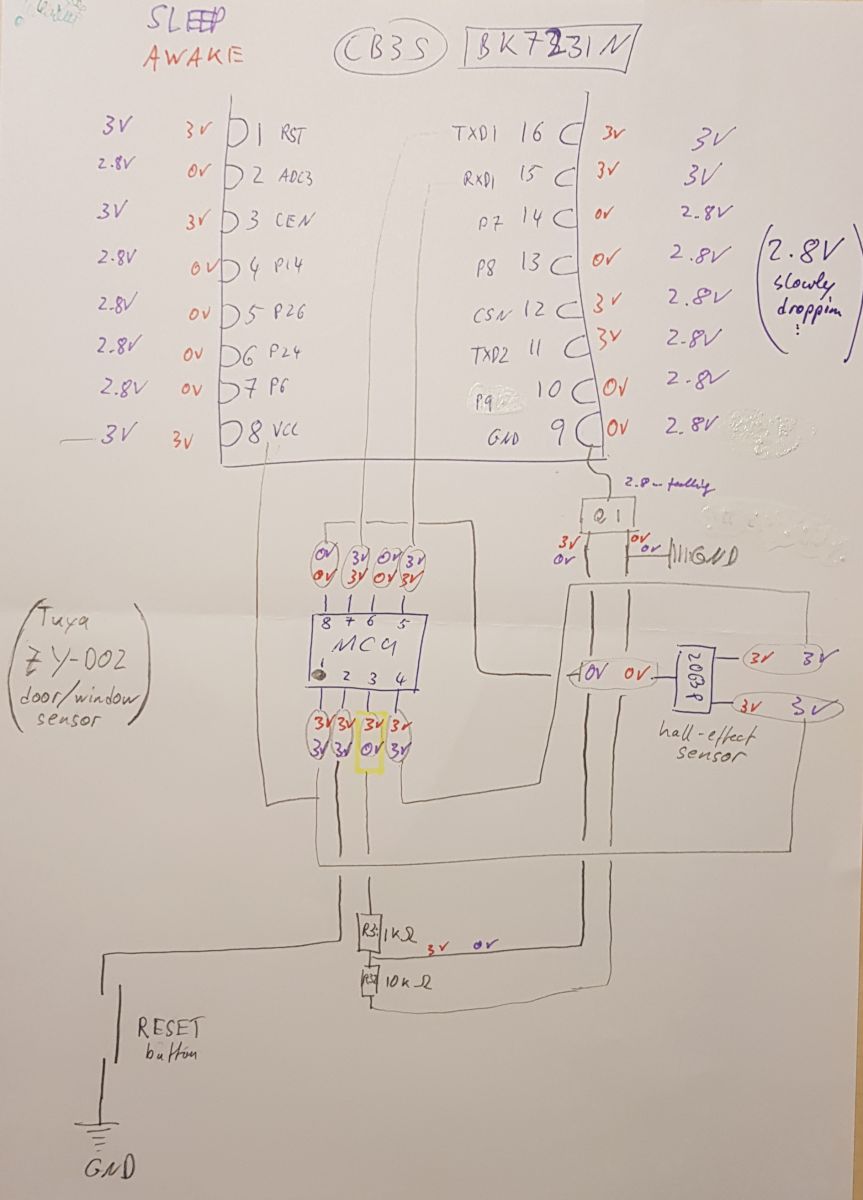 SLEEP
AWAKE
CB3S
BK7231N
3V 3V 1 RST
2.8V 0V 2 ADC3
3V 3V 3 CEN
2.8V 0V 4 P14
2.8V 0V 5 P26
2.8V 0V 6 P24
2.8V 0V 7 P6
3V 3V 8 VCC
TXD1 16 3V 3V
RXD1 15 3V 3V
P7 14 0V 2.8V
P8 13 0V 2.8V
CSN 12 3V 2.8V
TXD2 11 3V 2.8V
P9 10 0V 2.8V
GND 9 0V 2.8V
2.8V
slowly
droppim
!
2.8 - falling
Q1
3V 0V
0V 0V
GND
0V 3V 0V 3V
0V 3V 0V 3V
8 7 6 5
MCU
1 2 3 4
3V 3V 3V 3V
3V 3V 0V 3V
Tuya
ZY-D02
door/window
sensor
0V 0V
2063P
3V 3V
3V 3V
hall-effect
sensor
1kΩ
3V 0V
10kΩ
RESET
button
GND